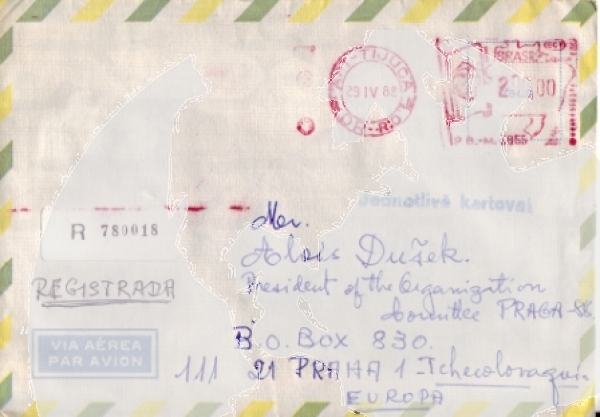 TIJUCA
29 IV 88
BRASIL
P B.-M. 1955
Jednotlivě kartoval
R 780018
REGISTRADA
VIA AÉREA
PAR AVION
Mr.
Alois Dušek.
President of the Organization
Committee PRAGA-88
B.O. Box 830.
111 21 PRAHA 1-Tchecoslovaquia
EUROPA